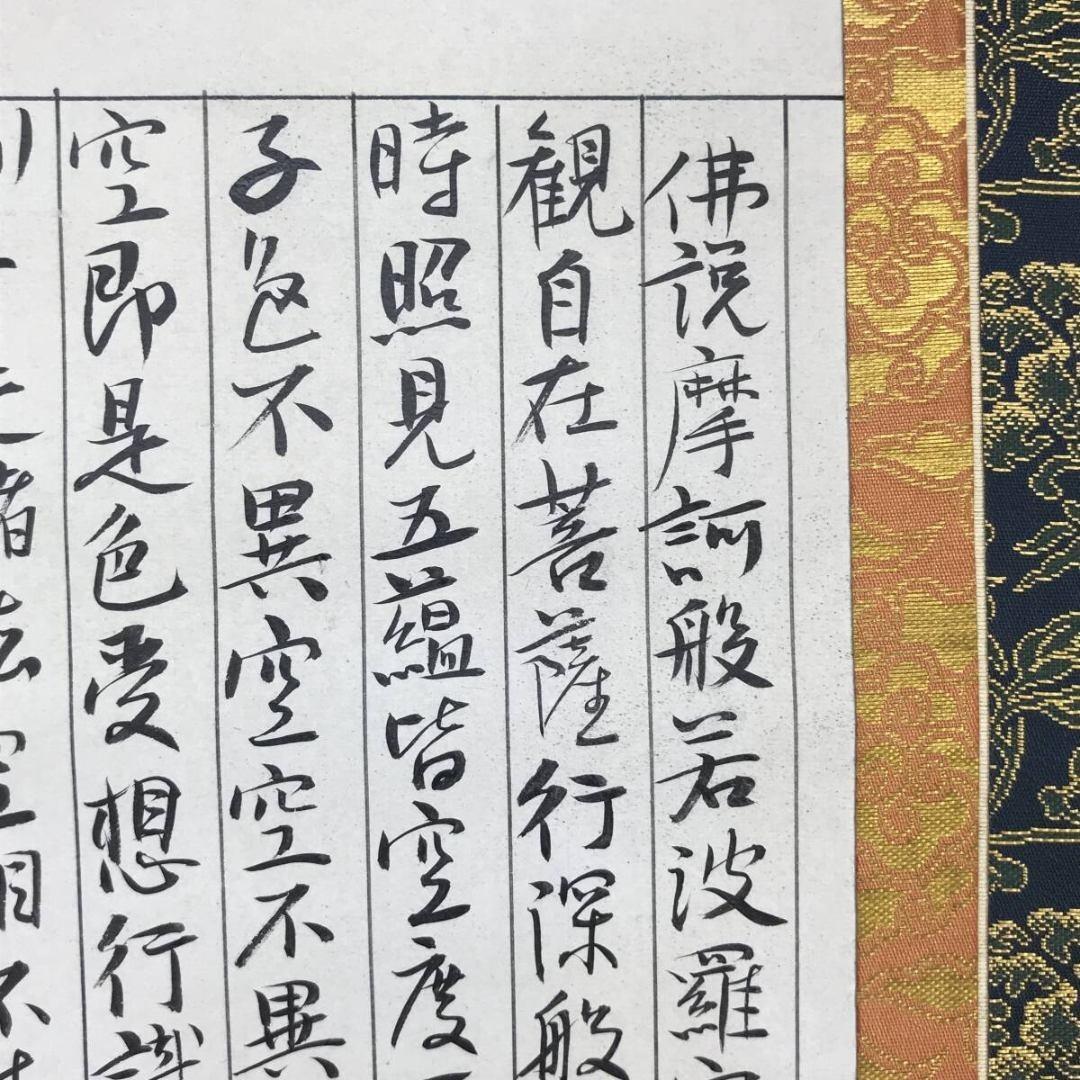 佛説摩訶般若波羅
観自在菩薩行深般
時照見五蘊皆空度
子色不異空空不異
空即是色受想行識
諸法空相不